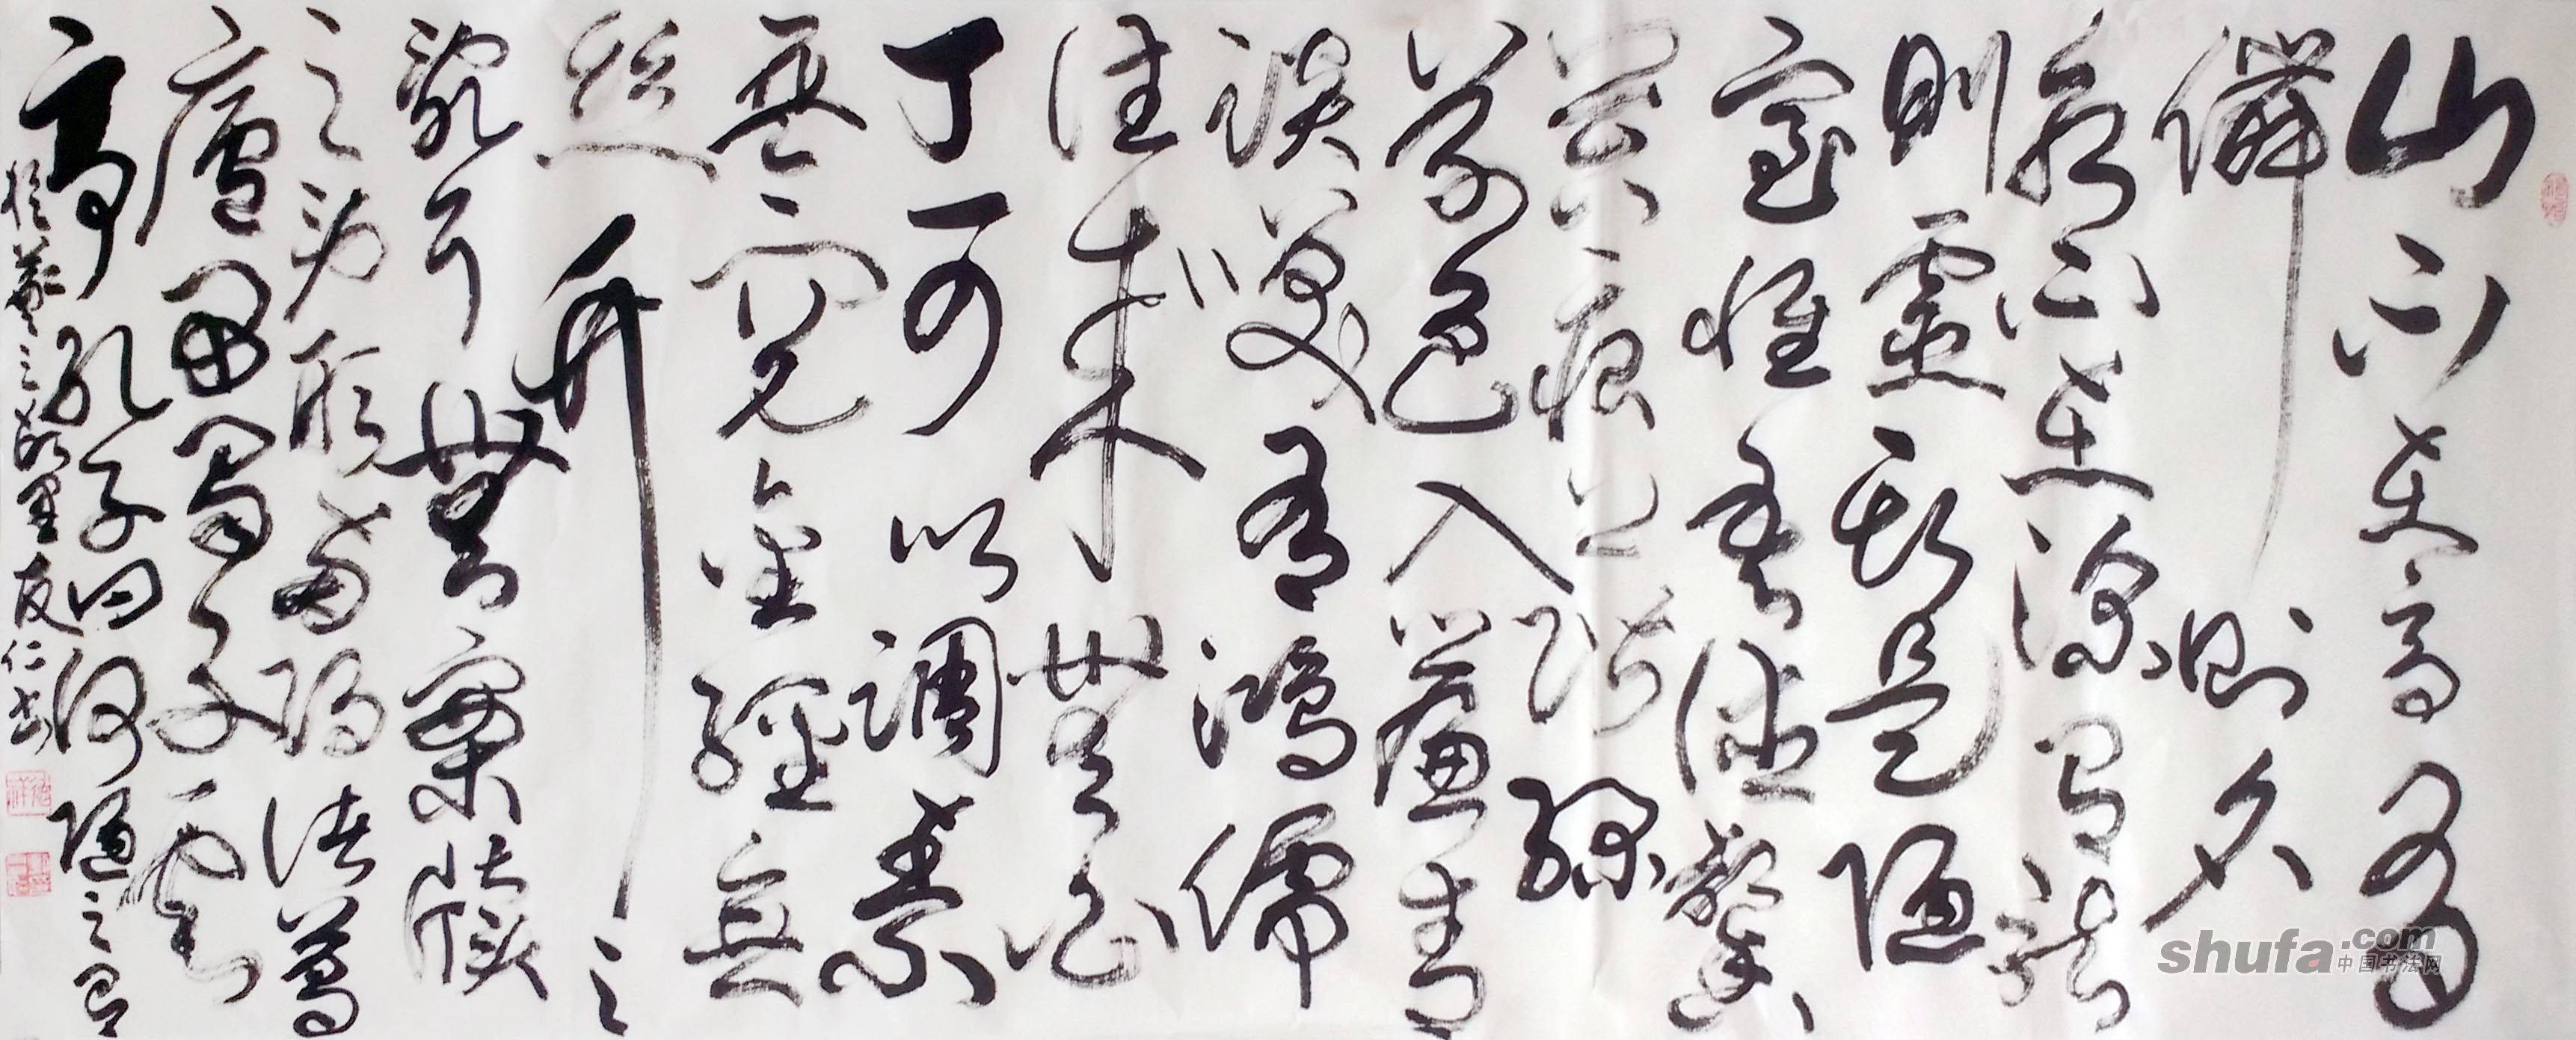 山不在高有
僊則名
水不在深有龍
則靈斯是陋
室惟吾德馨
苔痕上階緑
草色入簾青
談笑有鴻儒
往来無白
丁可以調素
琴閲金經無
絲竹之
亂耳無案牘
之勞形南陽諸葛
廬西蜀子雲
亭孔子曰何陋之有
友仁书
shufa.com
中国书法网